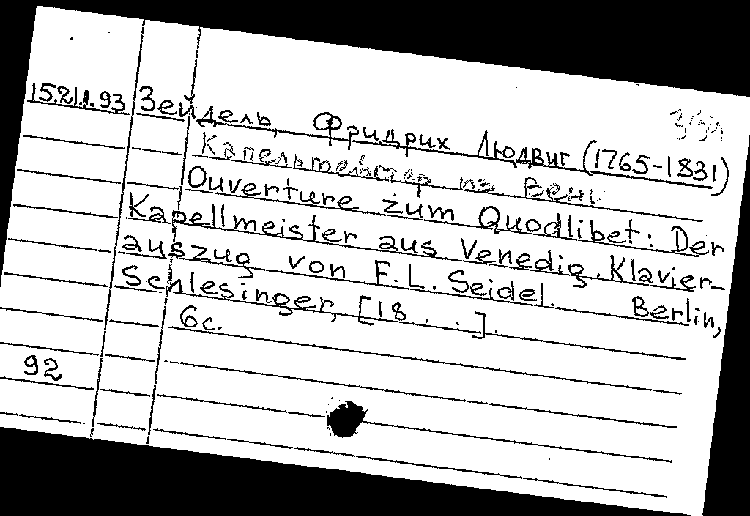 15.2.1.93 Зейдель, Фридрих Людвиг (1765-1831)
Капельмейстер из
Ouverture zum Quodlibet: Der
Kapellmeister aus Venedig. Klavier-
auszug von F. L. Seidel. Berlin,
Schlesinger, [18 . . .].
6с.
92